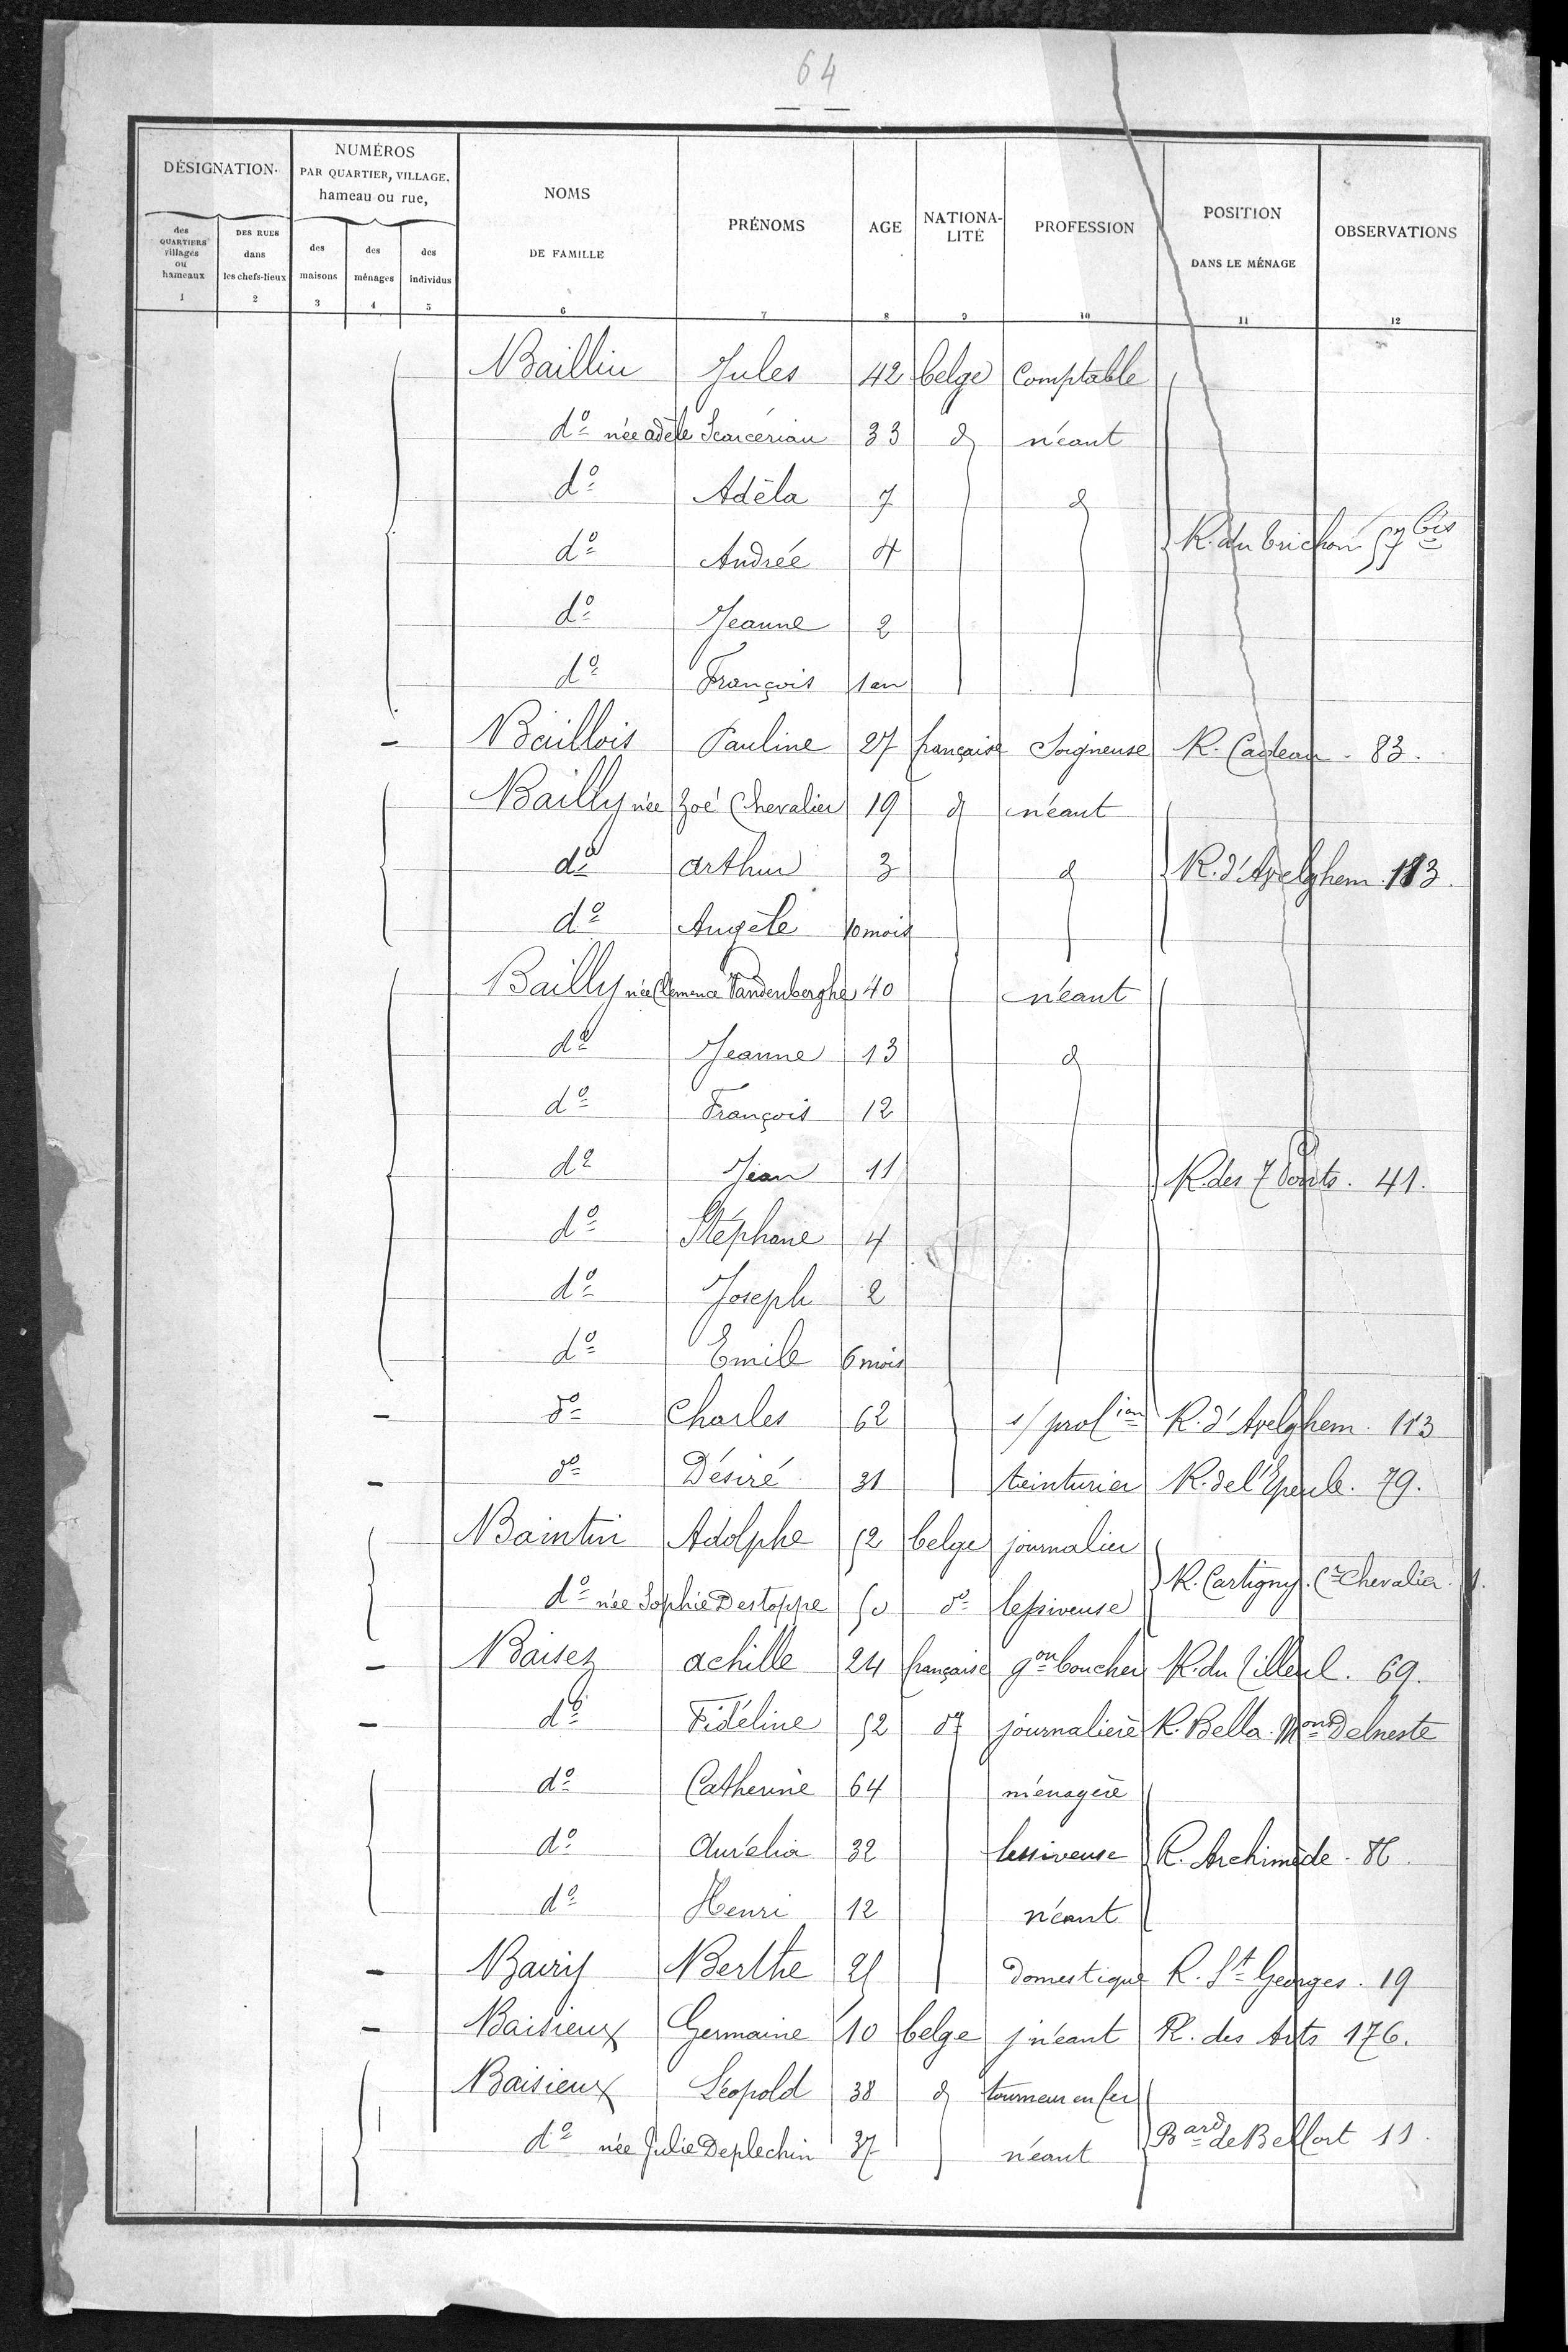 64
DÉSIGNATION
NUMÉROS
PAR QUARTIER, VILLAGE.
hameau ou rue,
des QUARTIERS villages ou hameaux
DES RUES dans les chefs-lieux
des maisons
des ménages
des individus
NOMS
DE FAMILLE
PRÉNOMS
AGE
NATIONA-
LITÉ
PROFESSION
POSITION
DANS LE MÉNAGE
OBSERVATIONS
1 2 3 4 5 6 7 8 9 10 11 12
Baillin Jules 42 belge Comptable
do née adèle 33 d néant
do Adèla 7 d
do Andrée 4 R. du brichon 57 bis
do Jeanne 2
do François 1 an
Baillois Pauline 27 française Soigneuse R. Cadeau . 83.
Bailly née Zoé Chevalier 19 d néant
do arthur 3 d R. d'Avelghem . 113.
do Angèle 10 mois
Bailly née Clémence Vandenberghe 40 néant
do Jeanne 13 d
do François 12
do Jean 11 R. des 7 Ponts . 41.
do Stéphane 4
do Joseph 2
do Emile 6 mois
do Charles 62 s/ profion R. d'Avelghem . 113
do Désiré 31 teinturier R. de l'Epeule . 79.
Baintin Adolphe 52 belge journalier
R. Cartigny . Cr Chevalier . 1.
do née Sophie Destoppe 50 do lessiveuse
Baisez achille 24 française gon boucher R. du Tilleul . 69.
do Fidéline 52 do journalière R. Bella . Mons Delneste
do Catherine 64 ménagère
do Aurélia 32 lessiveuse R. Archimède . 86.
do Henri 12 néant
Bairy Berthe 25 domestique R. St Georges . 19
Baisieux Germaine 10 belge néant R. des Arts 176.
Baisieux Léopold 38 d tourneur en fer
Bard de Belfort 11.
do née Julie Deplechin 37 néant